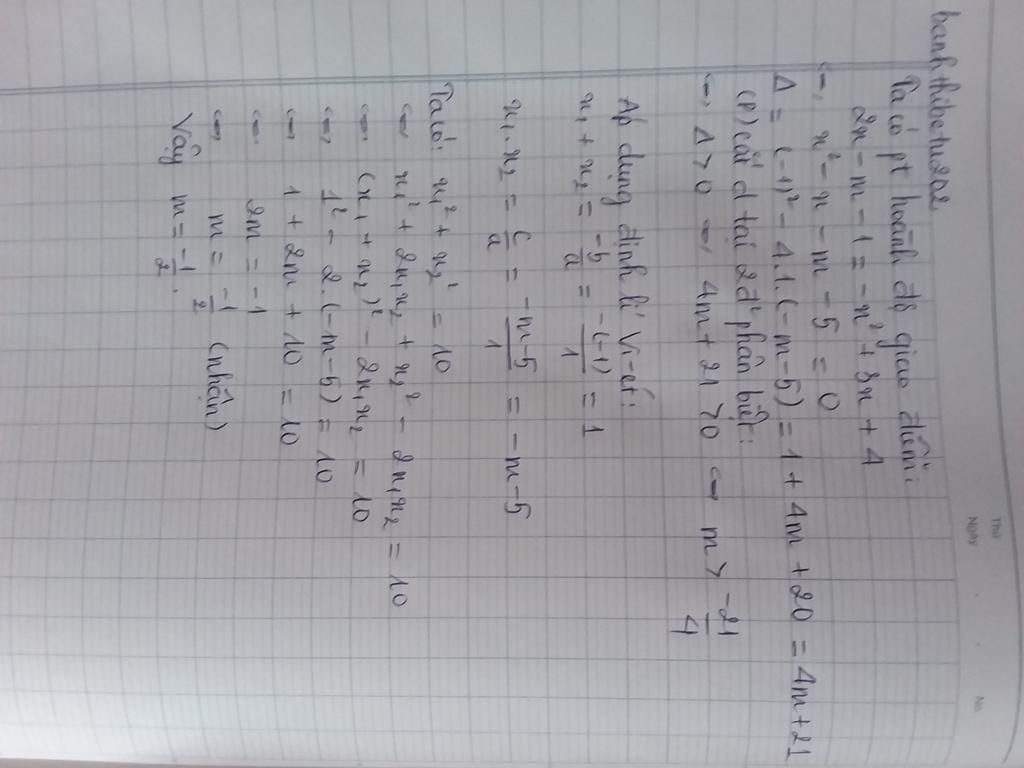 Thứ
Ngày
No.
banhthibetu202
Ta có pt hoành độ giao điểm:
2x - m - 1 = - x² + 3x + 4
<=> x² - x - m - 5 = 0
Δ = (-1)² - 4.1.(-m-5) = 1 + 4m + 20 = 4m + 21
(P) cắt d tại 2đ' phân biệt:
<=> Δ > 0 <=> 4m + 21 > 0 <=> m > -21/4
Áp dụng định lí Vi-ét:
x₁ + x₂ = -b/a = -(-1)/1 = 1
x₁.x₂ = c/a = -m-5/1 = -m-5
Ta có: x₁² + x₂² = 10
<=> x₁² + 2x₁x₂ + x₂² - 2x₁x₂ = 10
<=> (x₁ + x₂)² - 2x₁x₂ = 10
<=> 1² - 2.(-m-5) = 10
<=> 1 + 2m + 10 = 10
<=> 2m = -1
<=> m = -1/2 (nhận)
Vậy m = -1/2.